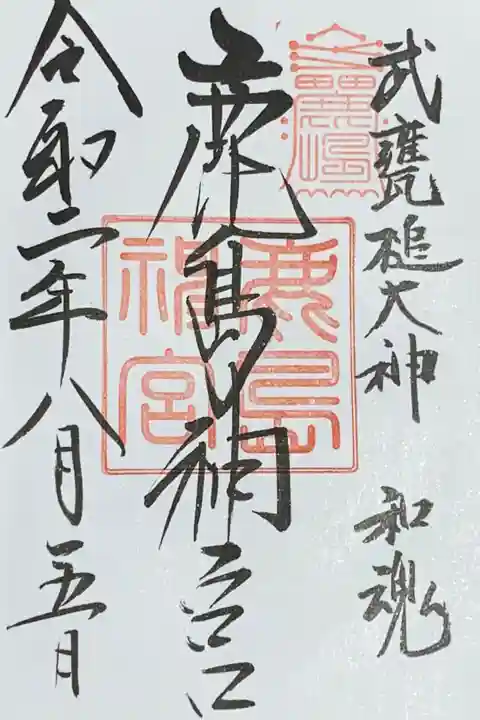 武甕槌大神 和魂
鹿島神宮
鹿島
神宮
令和二年八月五日